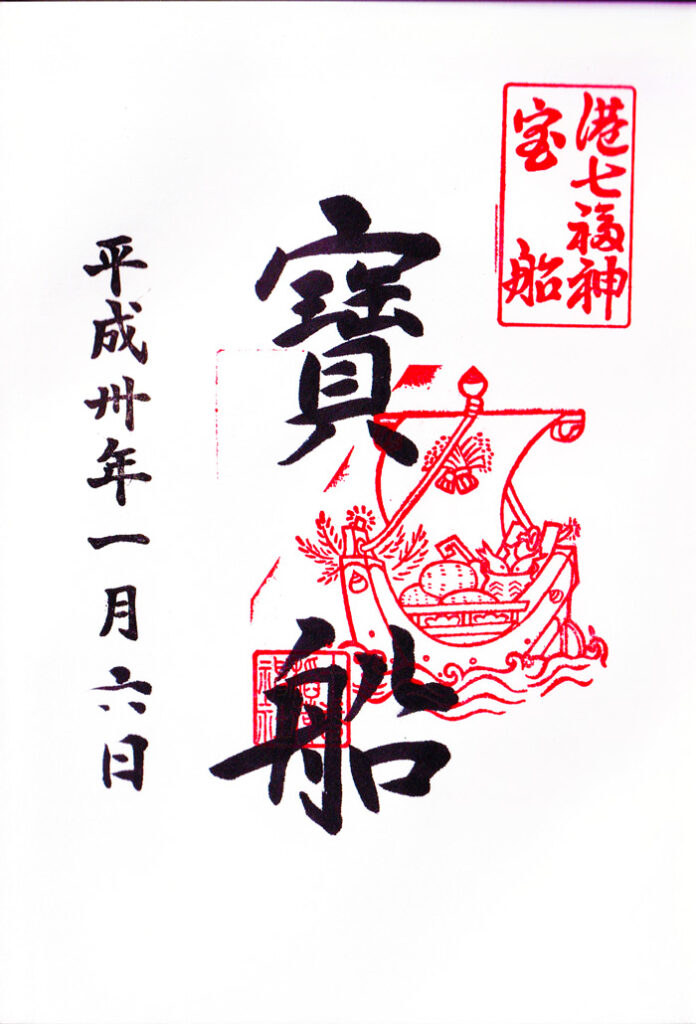 港七福神
宝船
寶船
平成卅年一月六日